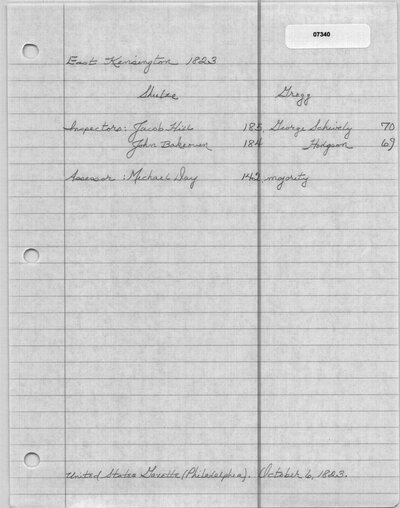 07340
East Kensington 1823
Shulze Gregg
Inspectors: Jacob Hill 185, George Schively 70
John Bakeoven 184 Hodgson 69
Assessor: Michael Day 142 majority
United States Gazette (Philadelphia). October 6, 1823.